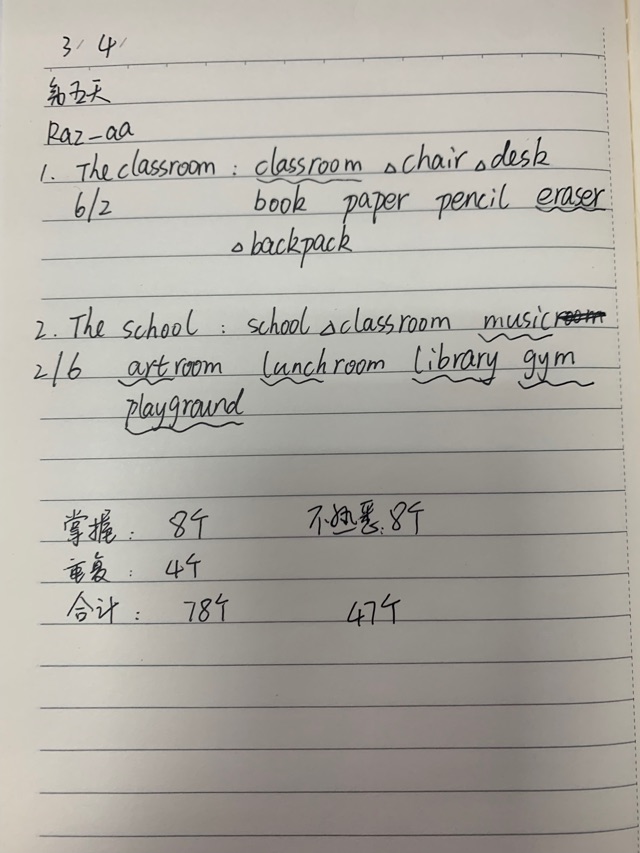 3/ 4/
第五天
Raz-aa
1. The classroom : classroom △chair △desk
6/2 book paper pencil eraser
△backpack
2. The school : school △classroom music
2/6 artroom lunchroom library gym
playground
掌握: 8个 不熟悉: 8个
重复: 4个
合计: 78个 47个